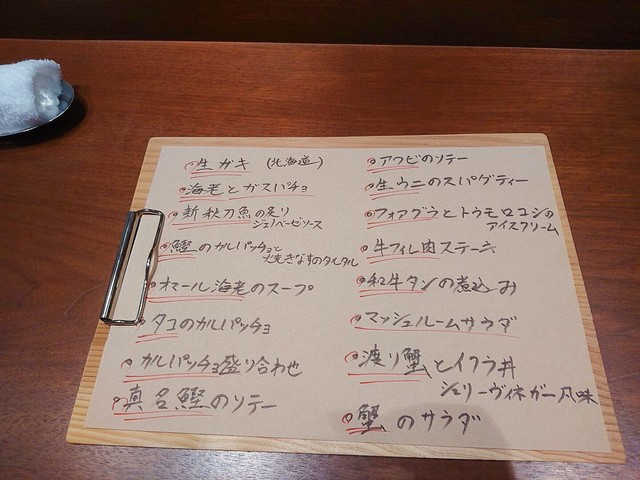 生ガキ (北海道)
海老とガスパチョ
新秋刀魚の炙り
ジェノベーゼソース
鰹のカルパッチョと
焼きなすのタルタル
オマール海老のスープ
タコのカルパッチョ
カルパッチョ盛り合わせ
真名鰹のソテー
アワビのソテー
生ウニのスパゲティー
フォアグラとトウモロコシの
アイスクリーム
牛フィレ肉ステーキ
和牛タンの煮込み
マッシュルームサラダ
渡り蟹とイクラ丼
シェリーヴィネガー風味
蟹のサラダ